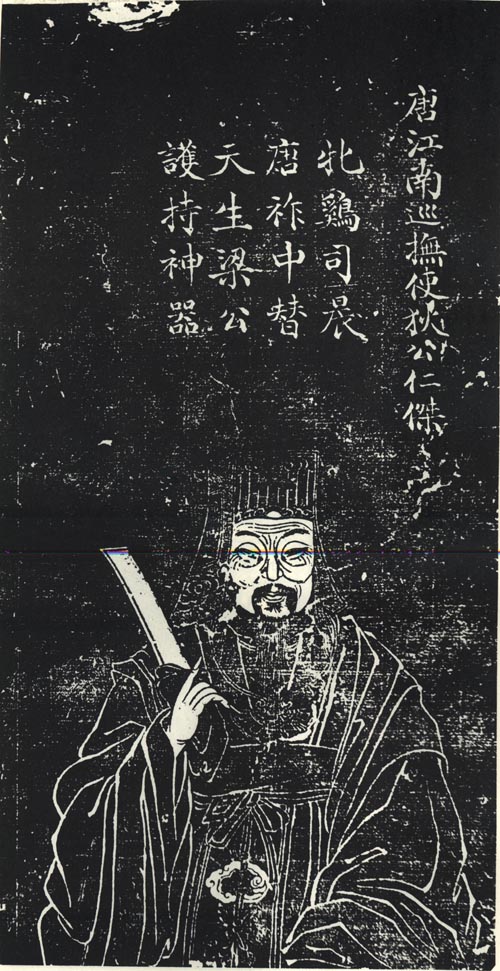 唐江南巡撫使狄公仁傑
牝鷄司晨
唐祚中替
天生梁公
護持神器